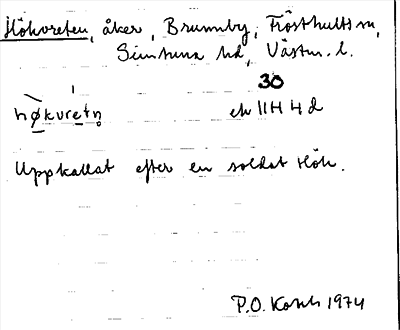 Hökvreten, åker, Brunnby, Frösthults sn,
Simtuna hd, Västm. l.
30
høkvretn ek 11H 4d
Uppkallat efter en soldat Hök.
P.O. 1974